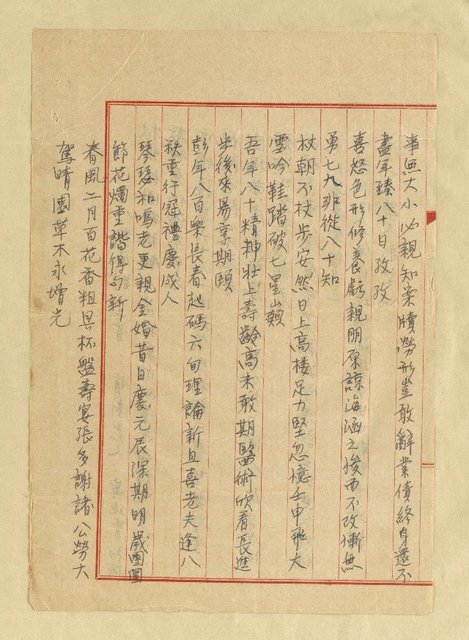 事無大小必親知案牘勞形豈敢辭業債終身還不
盡年臻八十日孜孜
喜怒色形修養虧親朋原諒海涵之俊而不改慚無
第七九非從八十知
杖朝不杖步安然日上高樓足力堅忽憶壬申飛大
雪吟鞋踏破七星巔
吾年八十精神壯上壽齡高未敢期醫術欣看長進
步後來易享期頤
彭年八百樂長春起碼六旬理論新且喜老夫逢八
秩重行冠禮慶成人
琴瑟和鳴老更親金婚昔日慶元辰深期明歲團圓
節花燭重諧得句新
春風二月百花香粗具杯盤壽宴張多謝諸公勞大
駕晴園草木永增光